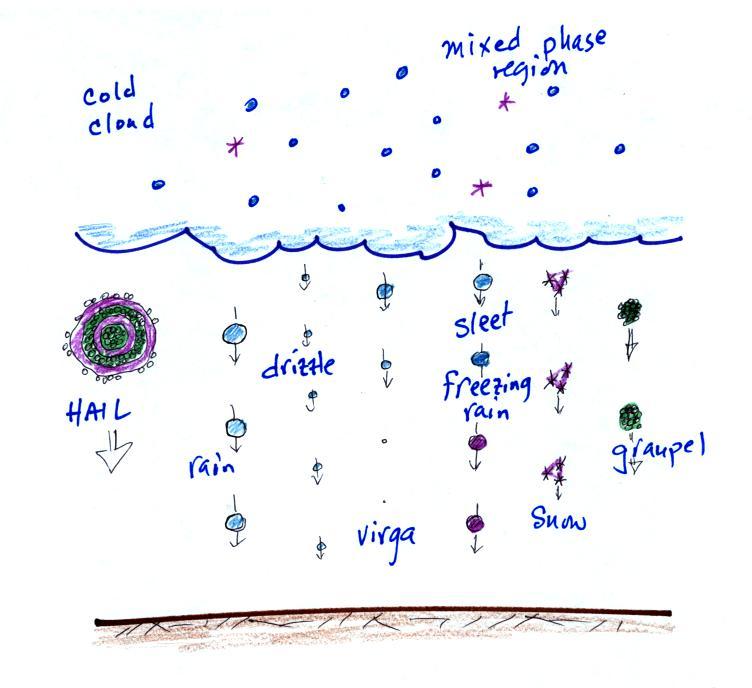 mixed phase
region
cold
cloud
sleet
drizzle
freezing
rain
HAIL
graupel
rain
Snow
virga